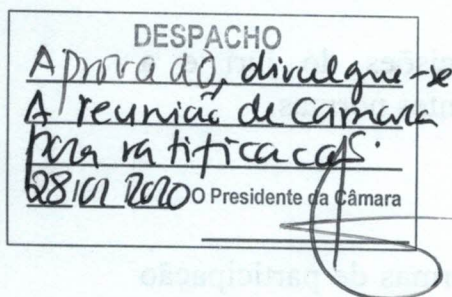 DESPACHO
Aprovado, divulgue-se
A reunião de câmara
para ratificação.
28/01/2020 O Presidente da Câmara
rmas de participação